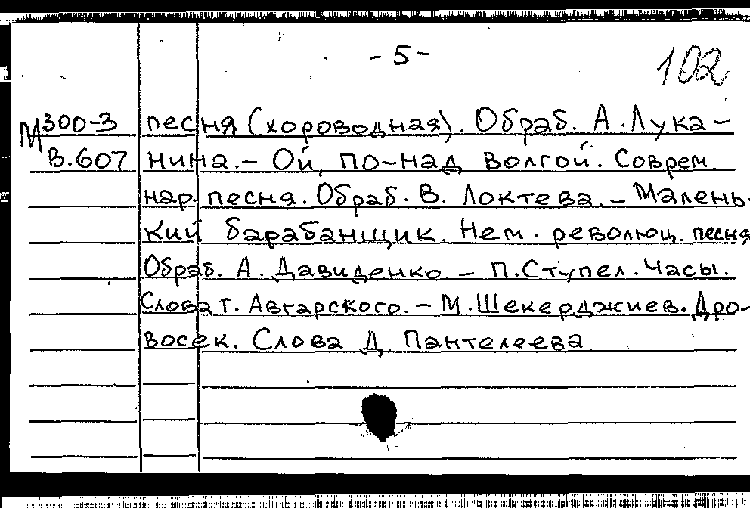 - 5 -
102
М300-3 песня (хороводная). Обраб. А. Лука-
В.607 нина. – Ой, по-над Волгой. Соврем.
нар. песня. Обраб. В. Локтева. – Малень-
кий барабанщик. Нем. революц. песня
Обраб. А. Давиденко – П. Ступел. Часы.
Слова т. Авгарского. – М. Шекерджиев. Дро-
восек. Слова Д. Пантелеева